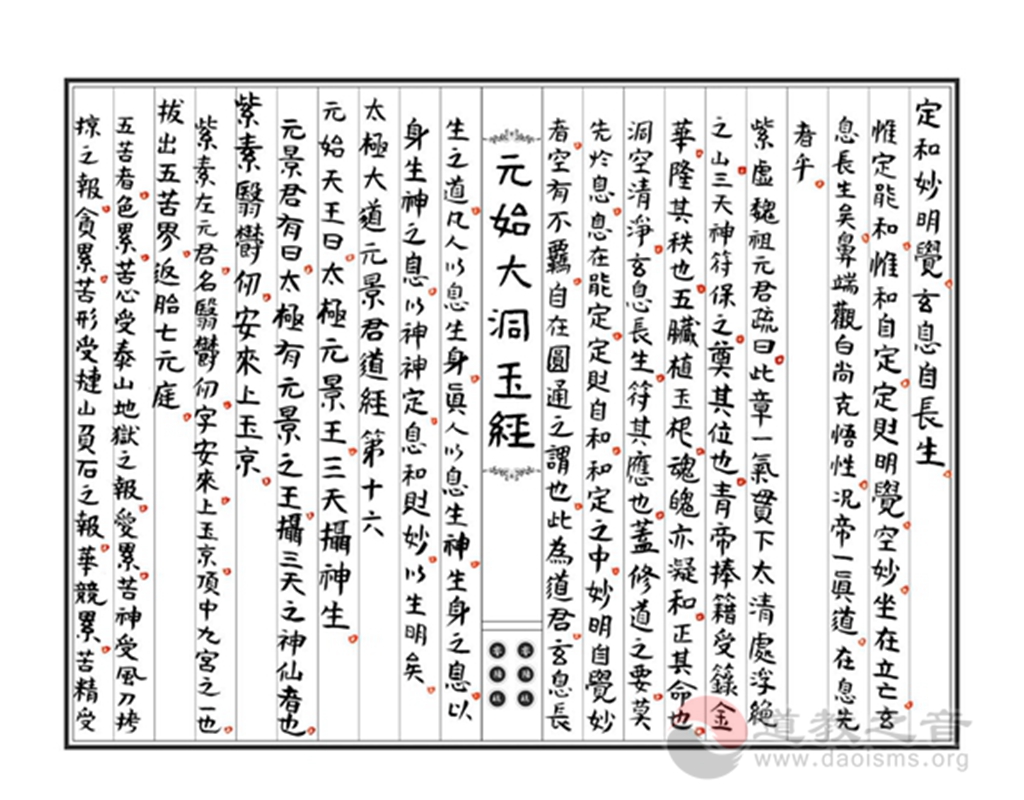 定和妙明覺玄息自長生
惟定能和惟和自定定則明覺空妙坐在立亡玄
息長生矣鼻端觀白尚克悟性況帝一眞道在息先
者乎
紫虛魏祖元君疏曰此章一氣貫下太清處浮絕
之山三天神符保之奠其位也青帝捧籍受籙金
華隆其秩也五臟植玉根魂魄亦凝和正其命也
洞空清淨玄息長生符其應也蓋修道之要莫
先於息息在能定定則自和和定之中妙明自覺妙
者空有不羈自在圓通之謂也此為道君玄息長
元始大洞玉經
生之道凡人以息生身眞人以息生神生身之息以
身生神之息以神神定息和則妙以生明矣
太極大道元景君道經第十六
元始天王曰太極元景王三天攝神生
元景君有曰太極有元景之王攝三天之神仙者也
紫素翳欝仞安來上玉京
紫素左元君名翳欝仞字安來上玉京頂中九宮之一也
拔出五苦界返胎七元庭
五苦者色累苦心受泰山地獄之報愛累苦神受風刀拷
掠之報貪累苦形受摙山負石之報華競累苦精受
道教之音
www.daoisms.org